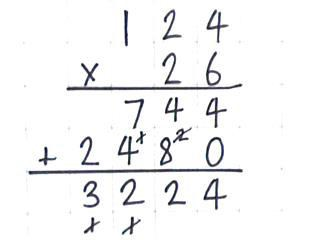 1 2 4
x 2 6
7 4 4
+ 2 4 1 8 2 0
3 2 2 4
1 1